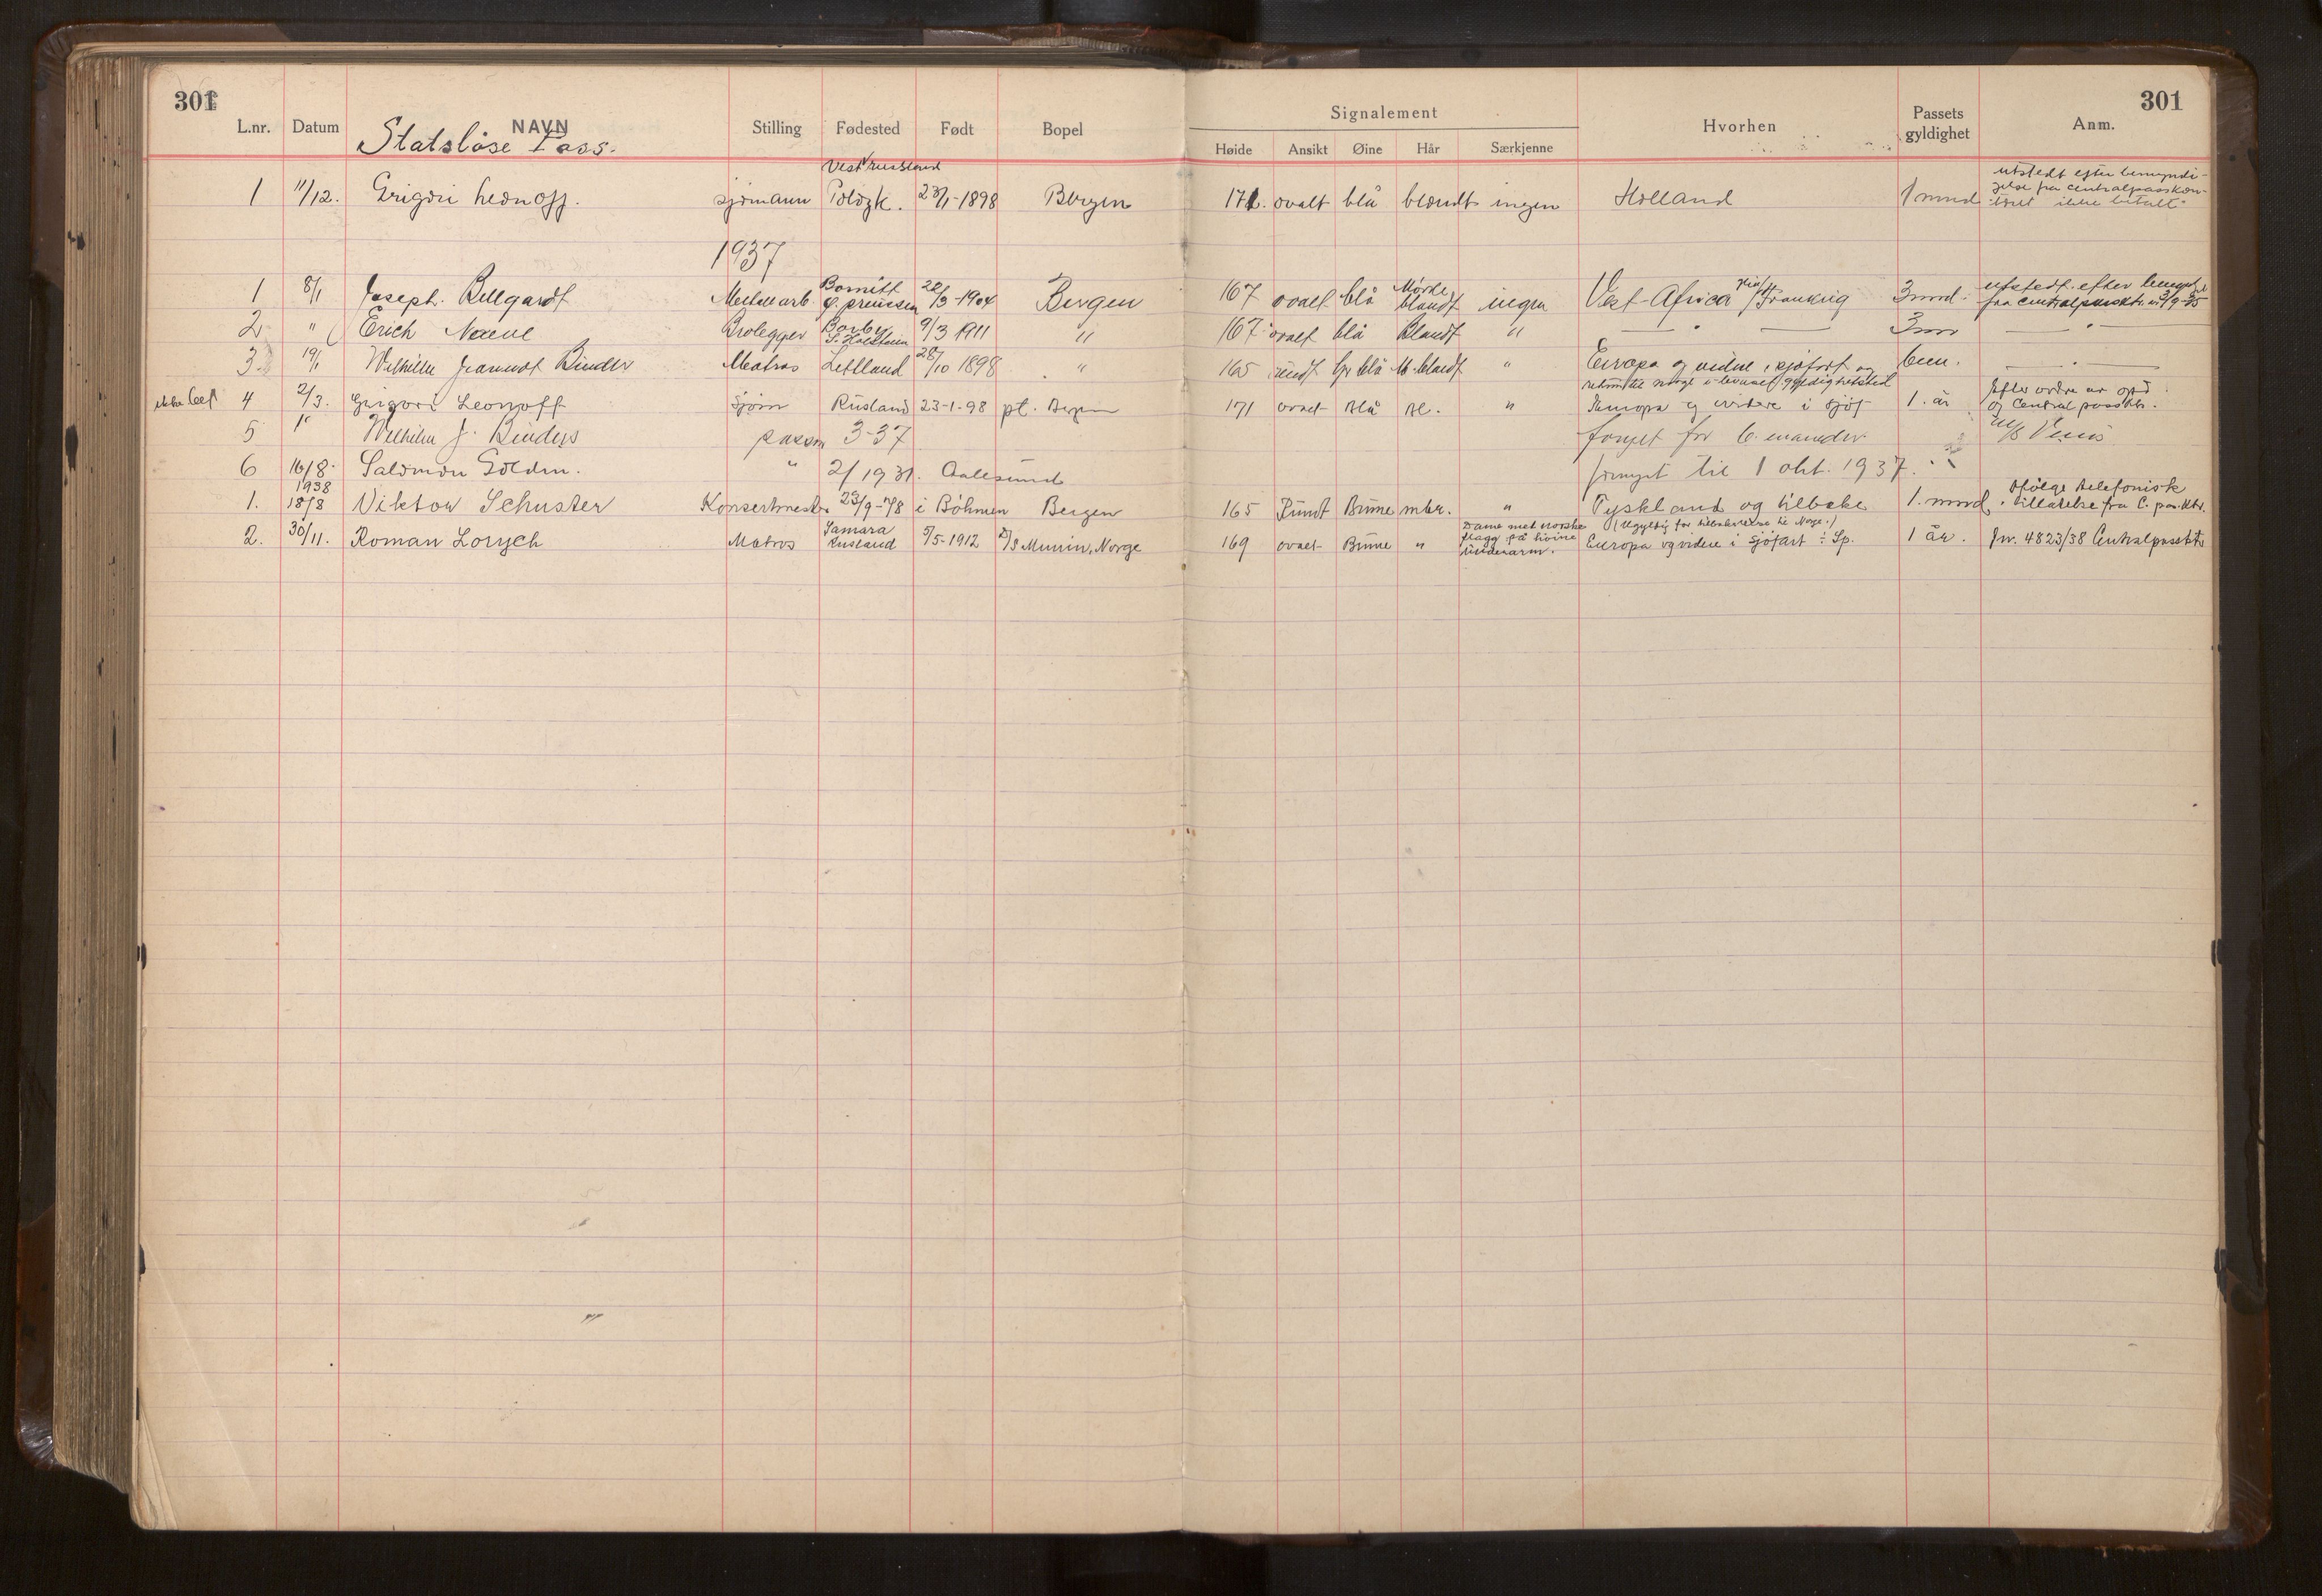 301 301
Signalement
L.nr. Datum NAVN Stilling Fødested Født Bopel Høide Ansikt Øine Hår Særkjenne Hvorhen Passets gyldighet Anm.
Statsløse Pass.
Vest russland utstedt efter bemyndi-
1 11/12. Grigori Leonoff. sjømann Polozk. 23/1-1898 Bergen 171. ovalt blå blondt ingen Holland 1 mnd gelse fra centralpasskon-
toret ikke betalt.
1937
1 8/1 Joseph. Bellgardt 28/3-1904 Bergen 167 ovalt blå Mørke blandt ingen Vest-Africa via Frankrig 3 mnd. utstedt efter
fra
2 " Erich Brolegger Barby S. Holstein 9/3 1911 " 167 ovalt blå Blandt " — " — 3 — " —
3. 19/1 Wilhelm Binder Matros Lettland 28/10 1898 " 165 rundt blå blandt " Europa og videre i sjøfart og
retur til Norge gyldighetstid
ikke bet 4 2/3. Grigori Leonoff Sjøm Rusland 23-1-98 pt. Bergen 171 ovalt Blå Bl. " Europa og videre i sjøf 1. år Efter ordre av
og Central passktr.
5 " Wilhelm J. Binders passnr 3-37 fornyet for 6. måneder
6 16/8. Salomon Goldin. " 2/1931. Aalesund fornyet til 1 okt. 1937.
1938
1. 18/8 Viktor Schuster Konsertmester 23/9-78 i Böhmen Bergen 165 Rundt Brune mbr. " Tyskland og tilbake 1. mnd. Ifølge telefonisk
tillatelse fra C. pas.ktr.
(Ugyldig for tilbakereise til Norge.)
2. 30/11. Roman Lorych Matros Samara Rusland 5/5-1912 D/S Munin, Norge 169 ovalt Brune " Dame med norske
flagg på høire
underarm. Europa og videre i sjøfart ÷ Sp. 1 år. Jnr. 4823/38 Centralpassktr